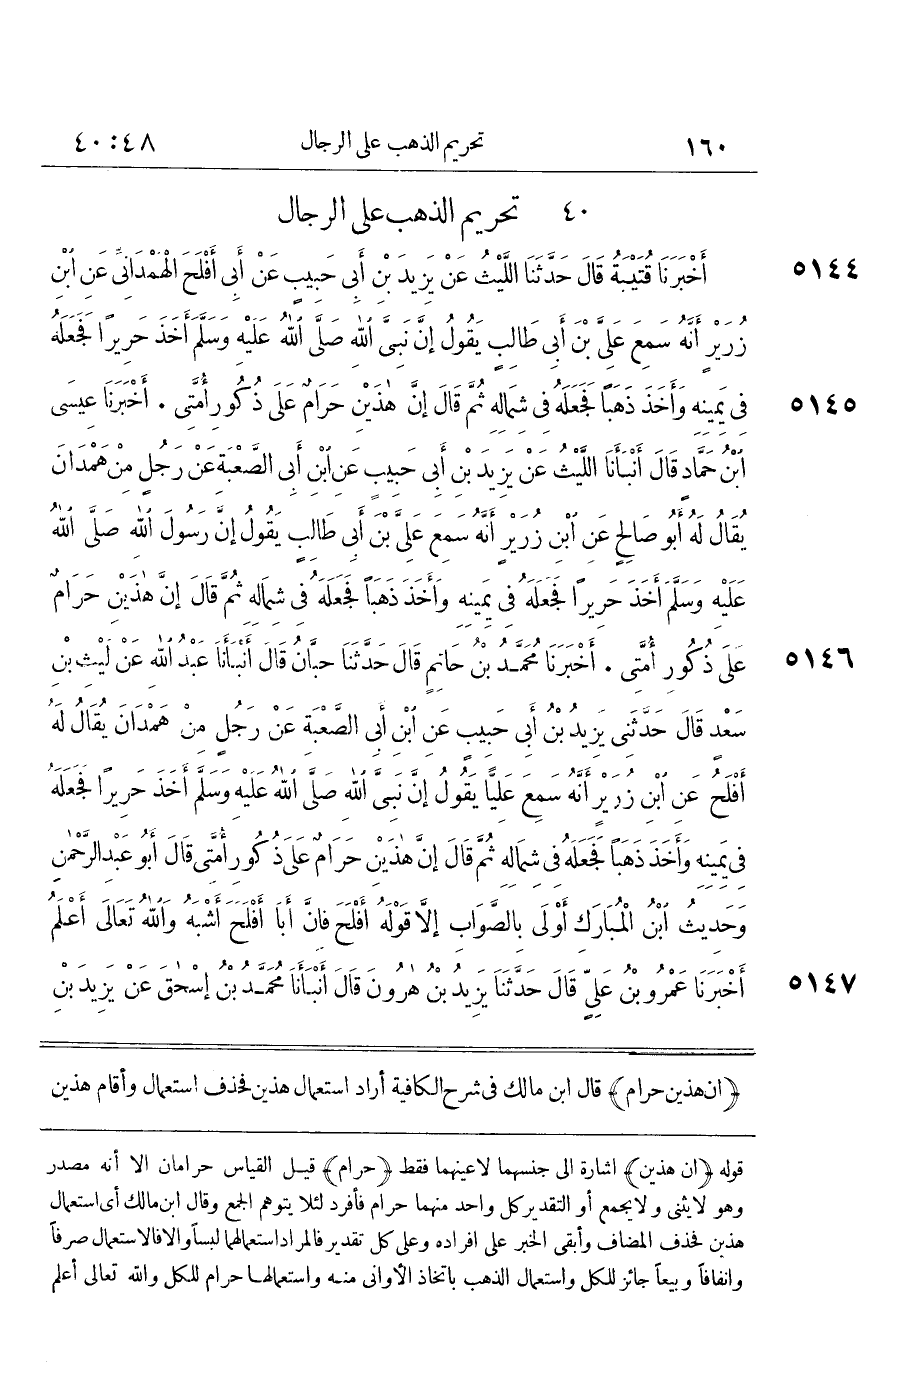 ١٦٠ تحريم الذهب على الرجال ٤٨ : ٤٠
٤٠ تحريم الذهب على الرجال
٥١٤٤ أَخْبَرَنَا قُتَيْبَةُ قَالَ حَدَّثَنَا اللَّيْثُ عَنْ يَزِيدَ بْنِ أَبِى حَبِيبٍ عَنْ أَبِى أَفْلَحَ الْهَمْدَانِىِّ عَنِ ابْنِ
زُرَيْرٍ أَنَّهُ سَمِعَ عَلِىَّ بْنَ أَبِى طَالِبٍ يَقُولُ إِنَّ نَبِىَّ اللهِ صَلَّى اللهُ عَلَيْهِ وَسَلَّمَ أَخَذَ حَرِيرًا فَجَعَلَهُ
٥١٤٥ فِى يَمِينِهِ وَأَخَذَ ذَهَبًا فَجَعَلَهُ فِى شِمَالِهِ ثُمَّ قَالَ إِنَّ هٰذَيْنِ حَرَامٌ عَلَى ذُكُورِ أُمَّتِى . أَخْبَرَنَا عِيسَى
ابْنُ حَمَّادٍ قَالَ أَنْبَأَنَا اللَّيْثُ عَنْ يَزِيدَ بْنِ أَبِى حَبِيبٍ عَنِ ابْنِ أَبِى الصَّعْبَةِ عَنْ رَجُلٍ مِنْ هَمْدَانَ
يُقَالُ لَهُ أَبُو صَالِحٍ عَنِ ابْنِ زُرَيْرٍ أَنَّهُ سَمِعَ عَلِىَّ بْنَ أَبِى طَالِبٍ يَقُولُ إِنَّ رَسُولَ اللهِ صَلَّى اللهُ
عَلَيْهِ وَسَلَّمَ أَخَذَ حَرِيرًا فَجَعَلَهُ فِى يَمِينِهِ وَأَخَذَ ذَهَبًا فَجَعَلَهُ فِى شِمَالِهِ ثُمَّ قَالَ إِنَّ هٰذَيْنِ حَرَامٌ
٥١٤٦ عَلَى ذُكُورِ أُمَّتِى . أَخْبَرَنَا مُحَمَّدُ بْنُ حَاتِمٍ قَالَ حَدَّثَنَا حِبَّانُ قَالَ أَنْبَأَنَا عَبْدُ اللهِ عَنْ لَيْثِ بْنِ
سَعْدٍ قَالَ حَدَّثَنِى يَزِيدُ بْنُ أَبِى حَبِيبٍ عَنِ ابْنِ أَبِى الصَّعْبَةِ عَنْ رَجُلٍ مِنْ هَمْدَانَ يُقَالُ لَهُ
أَفْلَحُ عَنِ ابْنِ زُرَيْرٍ أَنَّهُ سَمِعَ عَلِيًّا يَقُولُ إِنَّ نَبِىَّ اللهِ صَلَّى اللهُ عَلَيْهِ وَسَلَّمَ أَخَذَ حَرِيرًا فَجَعَلَهُ
فِى يَمِينِهِ وَأَخَذَ ذَهَبًا فَجَعَلَهُ فِى شِمَالِهِ ثُمَّ قَالَ إِنَّ هٰذَيْنِ حَرَامٌ عَلَى ذُكُورِ أُمَّتِى قَالَ أَبُو عَبْدِ الرَّحْمٰنِ
وَحَدِيثُ ابْنِ الْمُبَارَكِ أَوْلَى بِالصَّوَابِ إِلَّا قَوْلَهُ أَفْلَحَ فَانَّ أَبَا أَفْلَحَ أَشْبَهُ وَاللهُ تَعَالَى أَعْلَمُ
٥١٤٧ أَخْبَرَنَا عَمْرُو بْنُ عَلِىٍّ قَالَ حَدَّثَنَا يَزِيدُ بْنُ هٰرُونَ قَالَ أَنْبَأَنَا مُحَمَّدُ بْنُ إِسْحٰقَ عَنْ يَزِيدَ بْنِ
﴿ان هذين حرام﴾ قال ابن مالك فى شرح الكافية أراد استعمال هذين فحذف استعمال وأقام هذين
قوله ﴿ان هذين﴾ اشارة الى جنسهما لا عينهما فقط ﴿حرام﴾ قيل القياس حرامان الا أنه مصدر
وهو لا يثنى ولا يجمع أو التقدير كل واحد منهما حرام فأفرد لئلا يتوهم الجمع وقال ابن مالك أى استعمال
هذين فحذف المضاف وأبقى الخبر على افراده وعلى كل تقدير فالمراد استعمالهما لبسا والا فالاستعمال صرفاً
وانفاقاً وبيعاً جائز للكل واستعمال الذهب باتخاذ الأوانى منه واستعمالها حرام للكل والله تعالى أعلم